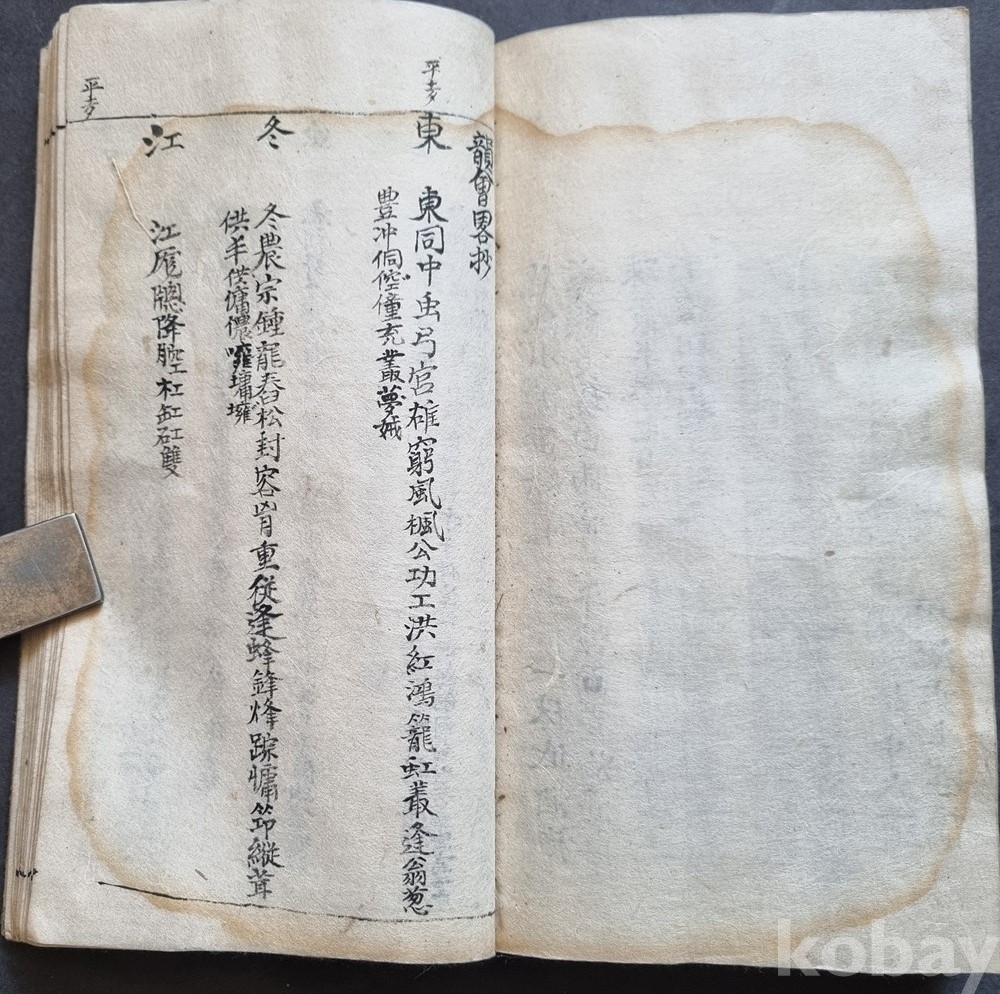 韻會畧抄
平声
東
東同中虫弓宮雄窮風楓公功工洪紅鴻籠虹叢逢翁葱
豊冲侗僮充叢夢娀
冬
冬農宗鍾龍舂松封容胷重従逢蜂鋒烽蹤慵筇縱茸
供丰供傭儂噰墉壅
平声
江
江厖牕降腔杠缸矼雙
kobay